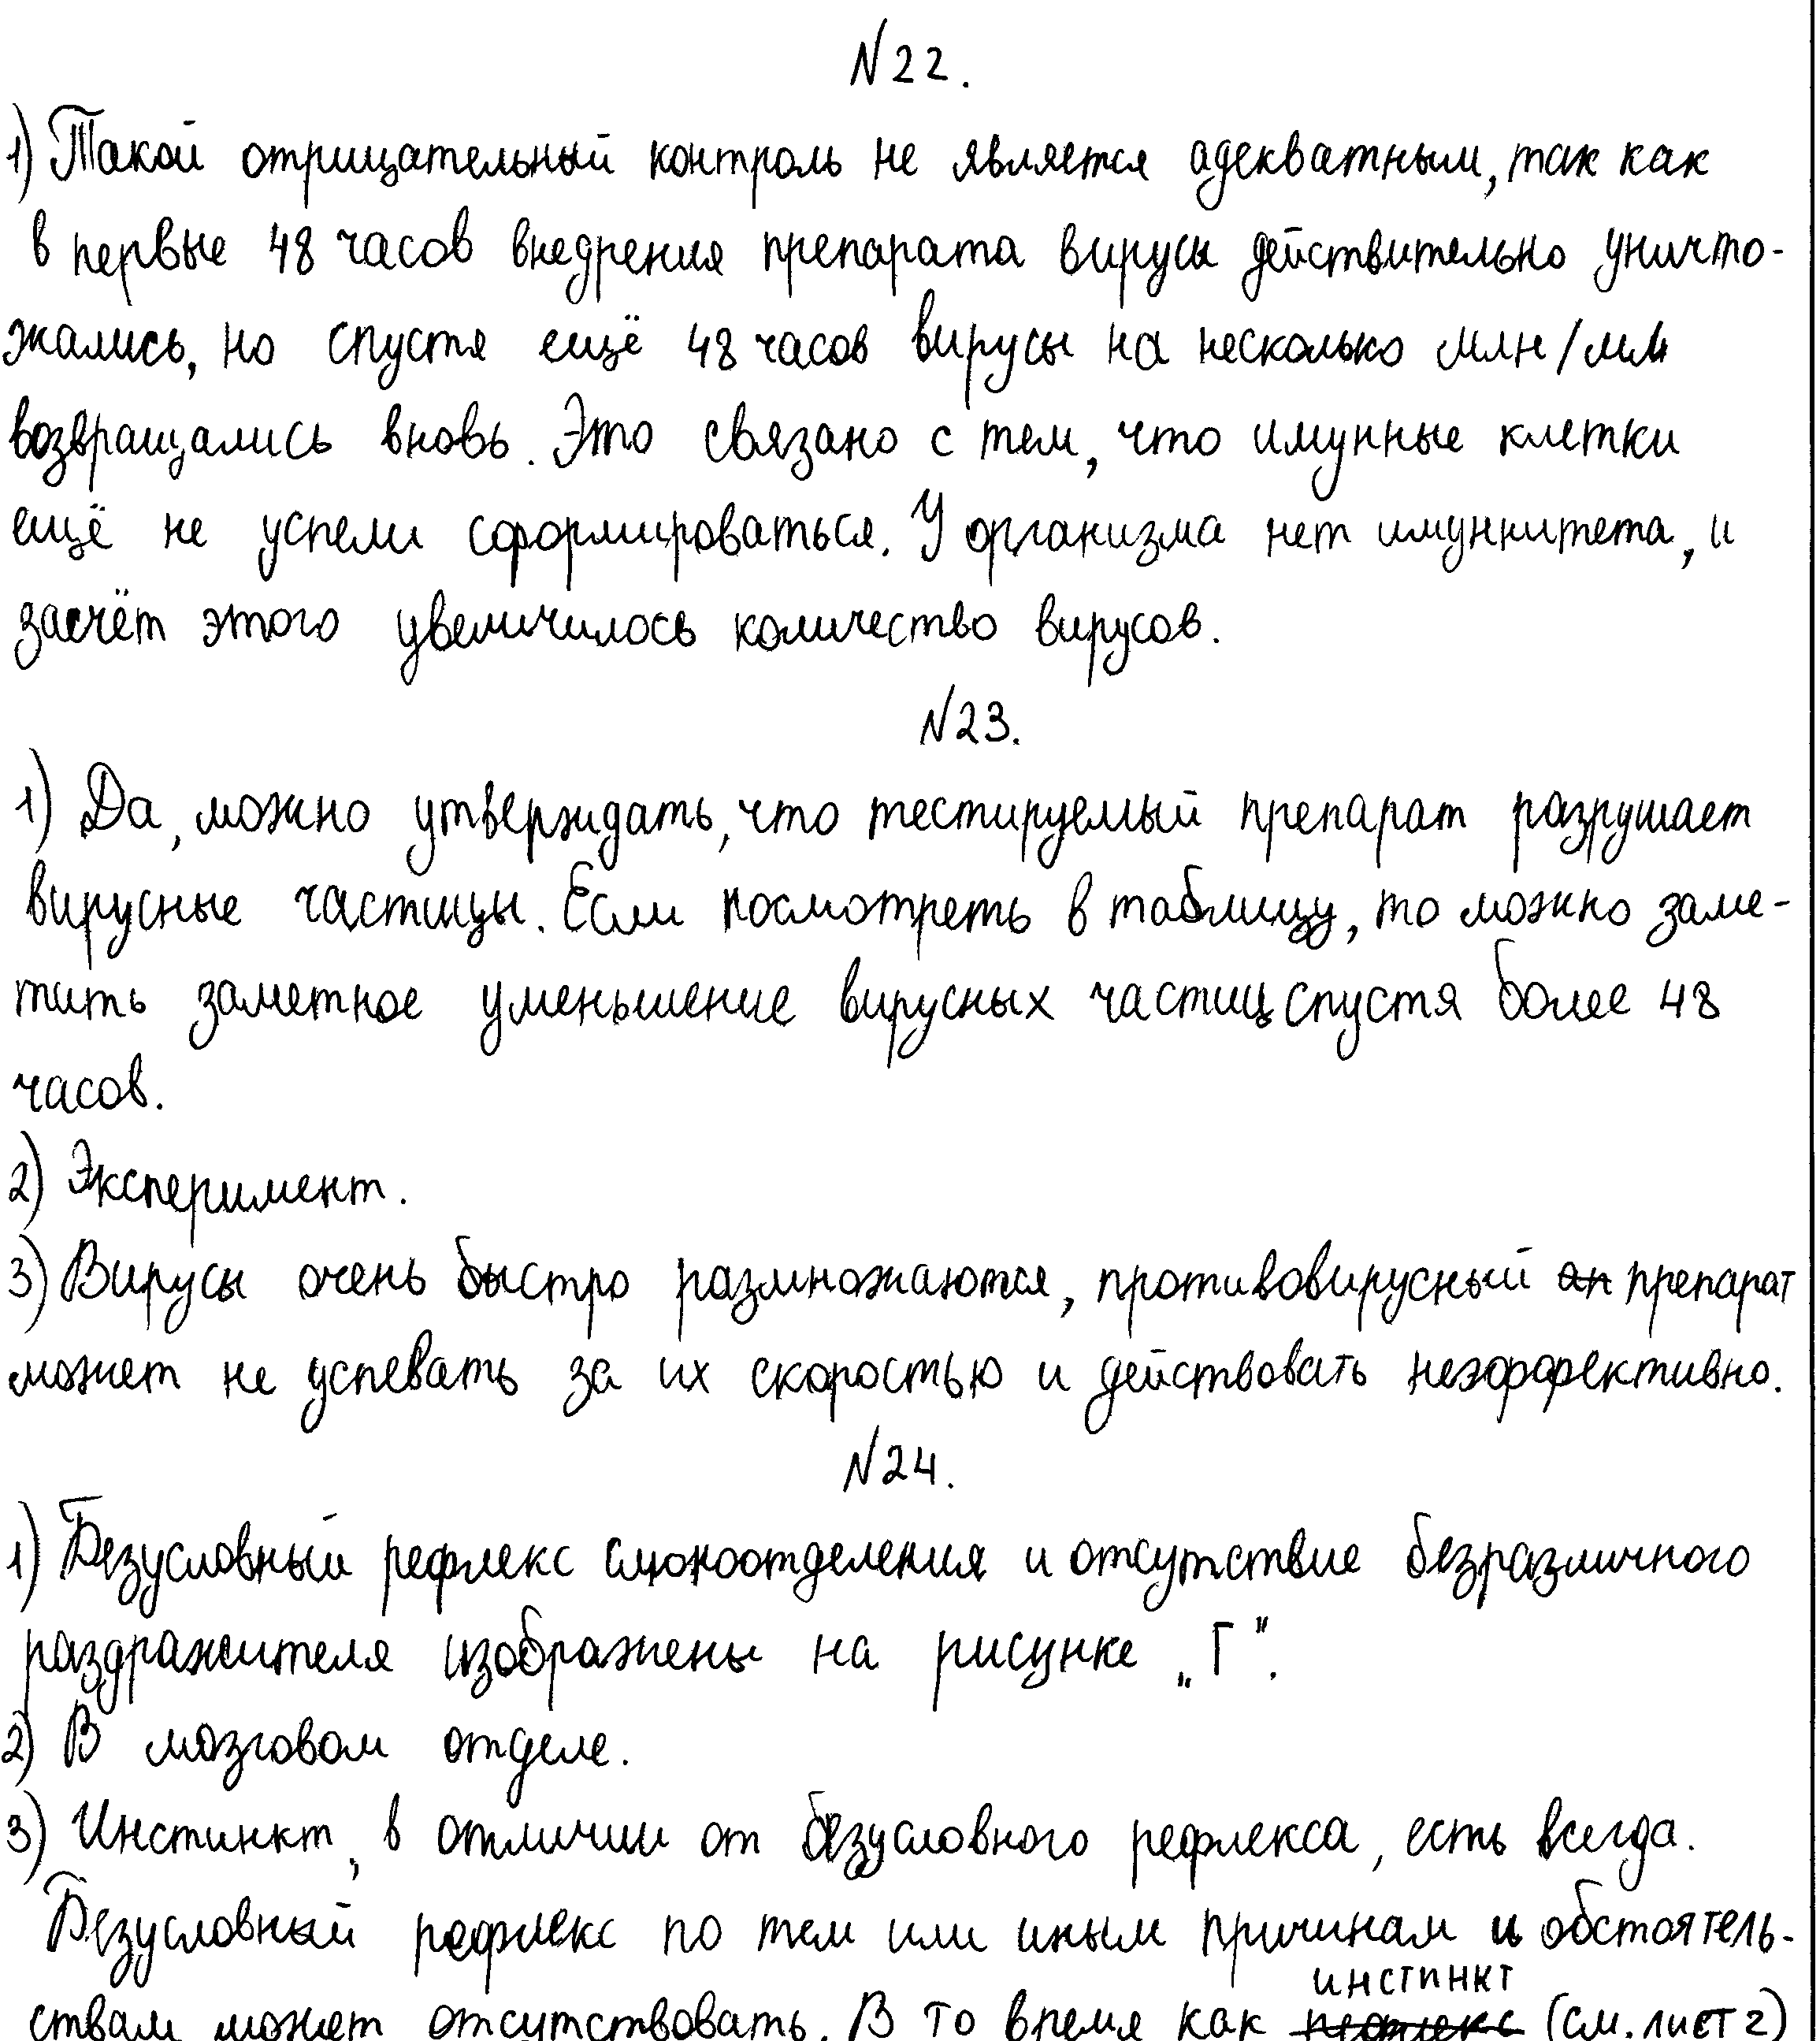 N22.
1) Такой отрицательный контроль не является адекватным, так как
в первые 48 часов внедрения препарата вирусы действительно уничто-
жались, но спустя ещё 48 часов вирусы на несколько млн/мл
возвращались вновь. Это связано с тем, что имунные клетки
ещё не успели сформироваться. У организма нет имуннитета, и
засчёт этого увеличилось количество вирусов.
N23.
1) Да, можно утверждать, что тестируемый препарат разрушает
вирусные частицы. Если посмотреть в таблицу, то можно заме-
тить заметное уменьшение вирусных частиц спустя более 48
часов.
2) Эксперимент.
3) Вирусы очень быстро размножаются, противовирусный ап препарат
может не успевать за их скоростью и действовать неэффективно.
N24.
1) Безусловный рефлекс слюноотделения и отсутствие безразличного
раздражителя изображены на рисунке „Г".
2) В мозговом отделе.
3) Инстинкт, в отличии от безусловного рефлекса, есть всегда.
Безусловный рефлекс по тем или иным причинам и обстоятель-
инстинкт
ствам может отсутствовать. В то время как рефлекс (см. лист 2)